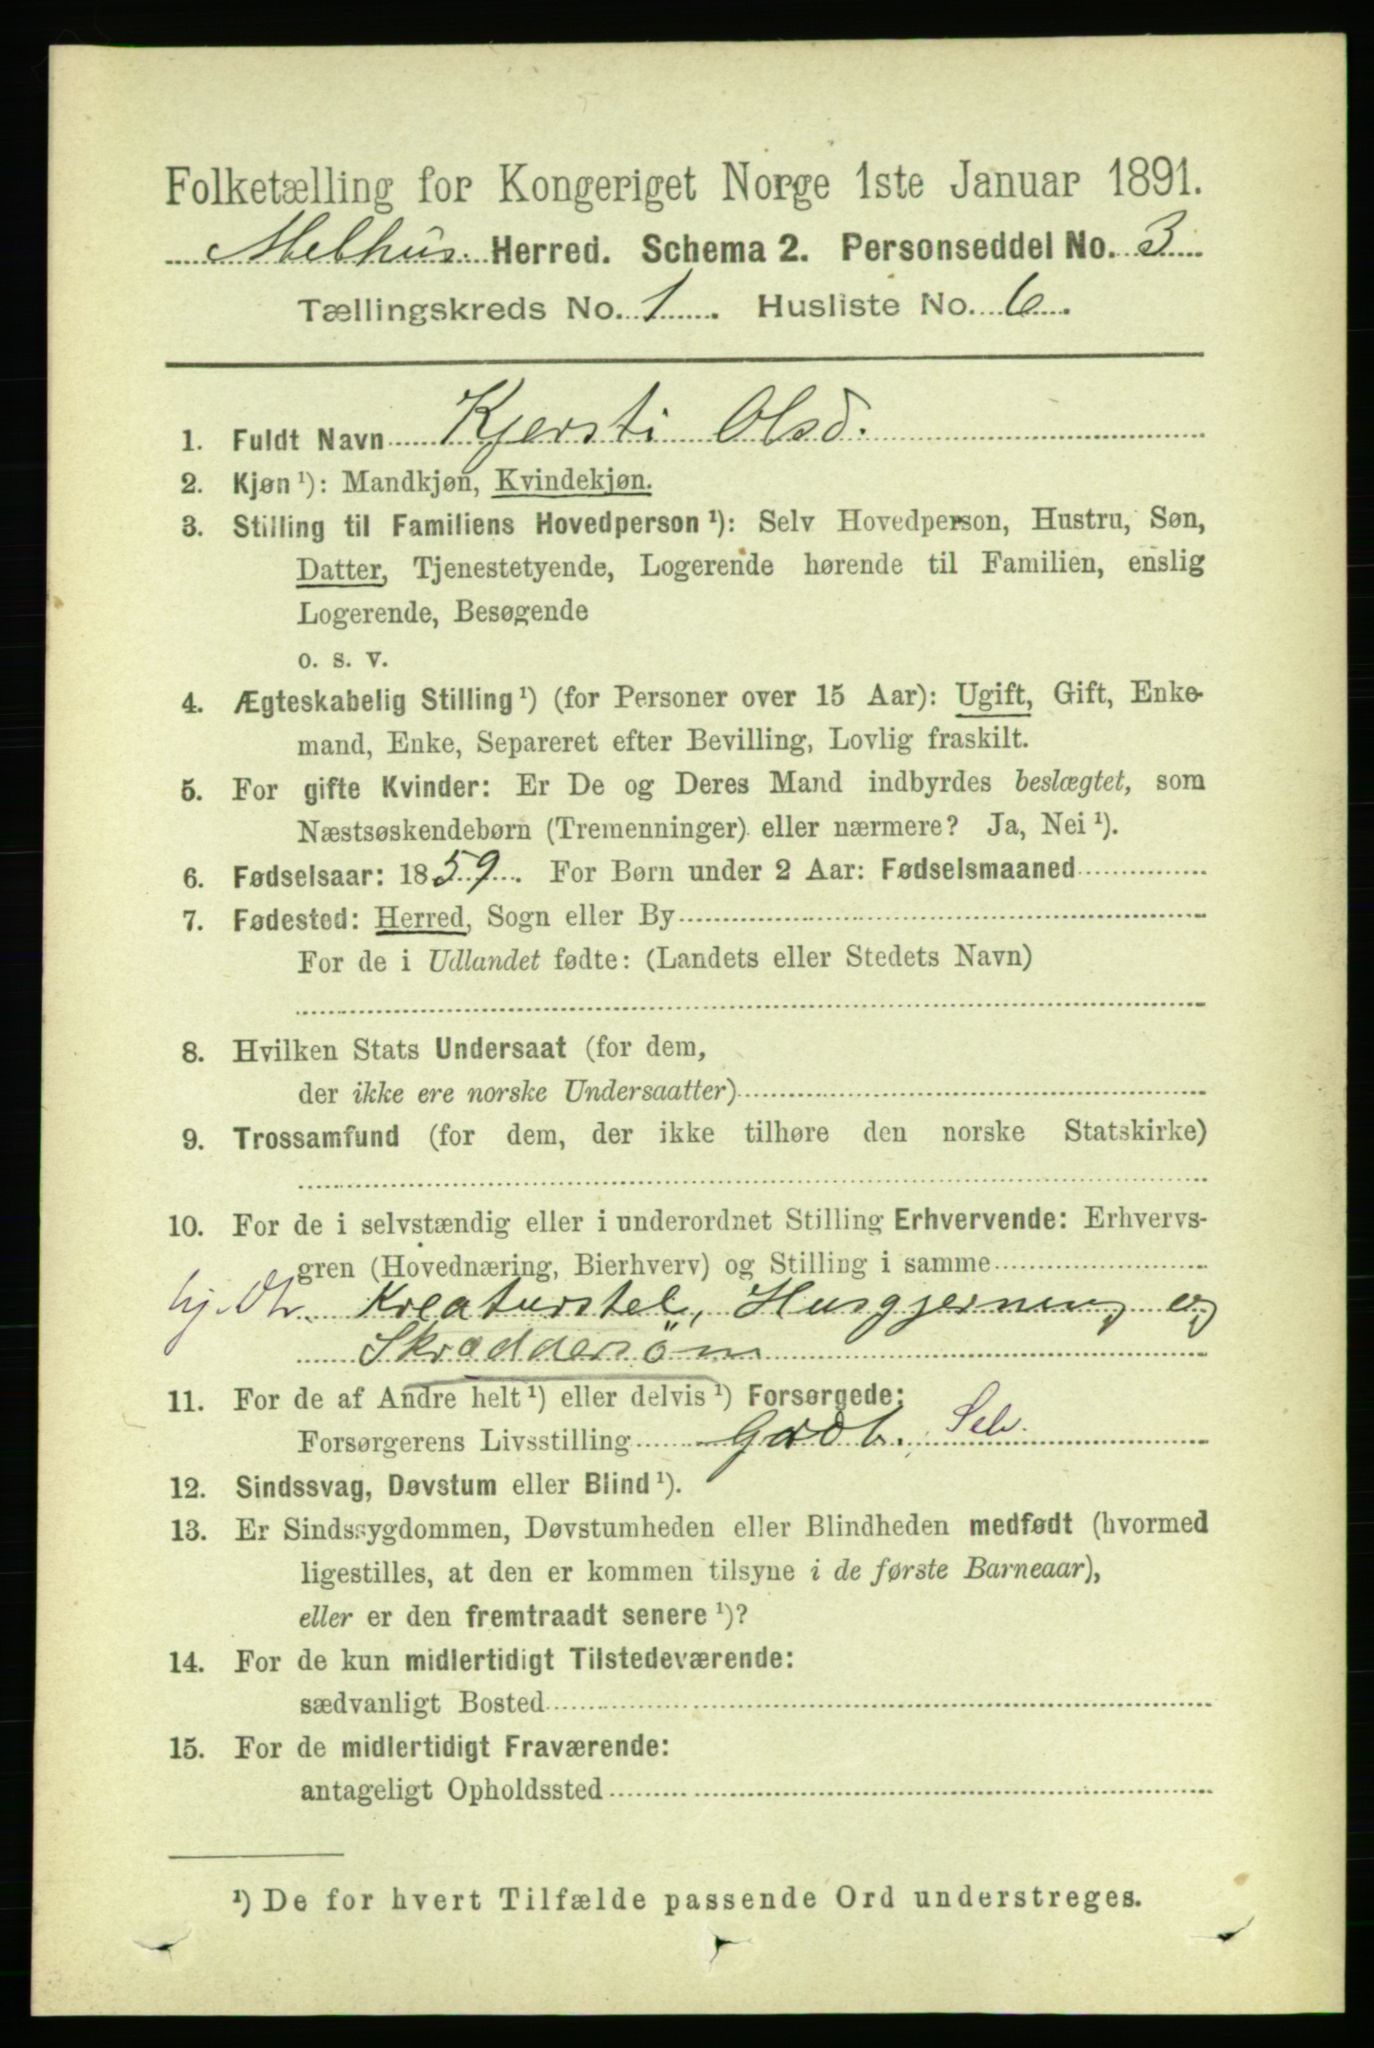 Folketælling for Kongeriget Norge 1ste Januar 1891.
Melhus Herred. Schema 2. Personseddel No. 3
Tællingskreds No. 1. Husliste No. 6.
1. Fuldt Navn Kjersti Olsd.
2. Kjøn ¹): Mandkjøn, Kvindekjøn.
3. Stilling til Familiens Hovedperson ¹): Selv Hovedperson, Hustru, Søn,
Datter, Tjenestetyende, Logerende hørende til Familien, enslig
Logerende, Besøgende
o. s. v.
4. Ægteskabelig Stilling ¹) (for Personer over 15 Aar): Ugift, Gift, Enke-
mand, Enke, Separeret efter Bevilling, Lovlig fraskilt.
5. For gifte Kvinder: Er De og Deres Mand indbyrdes beslægtet, som
Næstsøskendebørn (Tremenninger) eller nærmere? Ja, Nei ¹).
6. Fødselsaar: 1859. For Børn under 2 Aar: Fødselsmaaned
7. Fødested: Herred, Sogn eller By
For de i Udlandet fødte: (Landets eller Stedets Navn)
8. Hvilken Stats Undersaat (for dem,
der ikke ere norske Undersaatter)
9. Trossamfund (for dem, der ikke tilhøre den norske Statskirke)
10. For de i selvstændig eller i underordnet Stilling Erhvervende: Erhvervs-
gren (Hovednæring, Bierhverv) og Stilling i samme
hj. Dtr. Kreaturstel, Husgjerning og
Skræddersøm
11. For de af Andre helt ¹) eller delvis ¹) Forsørgede:
Forsørgerens Livsstilling Gdb. Selv.
12. Sindssvag, Døvstum eller Blind ¹).
13. Er Sindssygdommen, Døvstumheden eller Blindheden medfødt (hvormed
ligestilles, at den er kommen tilsyne i de første Barneaar),
eller er den fremtraadt senere ¹)?
14. For de kun midlertidigt Tilstedeværende:
sædvanligt Bosted
15. For de midlertidigt Fraværende:
antageligt Opholdssted
¹) De for hvert Tilfælde passende Ord understreges.